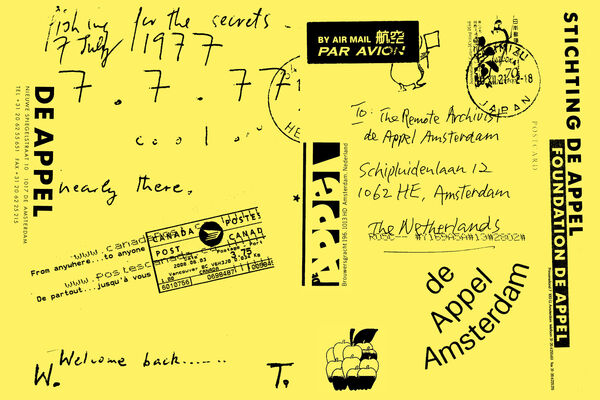 fishing for the secrets.
7 July / 1977
7 . 7 . 77
cool
nearly there.
DE APPEL
NIEUWE SPIEGELSTRAAT 10 1017 DE AMSTERDAM
CANADA POSTES
POST CANAD
3.75
Vancouver BC
CANADA
6010756 0698487
www.canadapost.c
From anywhere... to anyone
www.postescanada.c
De partout... jusqu'à vous
Welcome back......
W. T.
BY AIR MAIL 航空
PAR AVION
JAPAN
POSTCARD
To: The Remote Archivist
de Appel Amsterdam
Schipluidenlaan 12
1062 HE, Amsterdam
The Netherlands
Appel
Brouwersgracht 196, 1013 HD Amsterdam, Nederland
de
Appel
Amsterdam
STICHTING DE APPEL
FOUNDATION DE APPEL